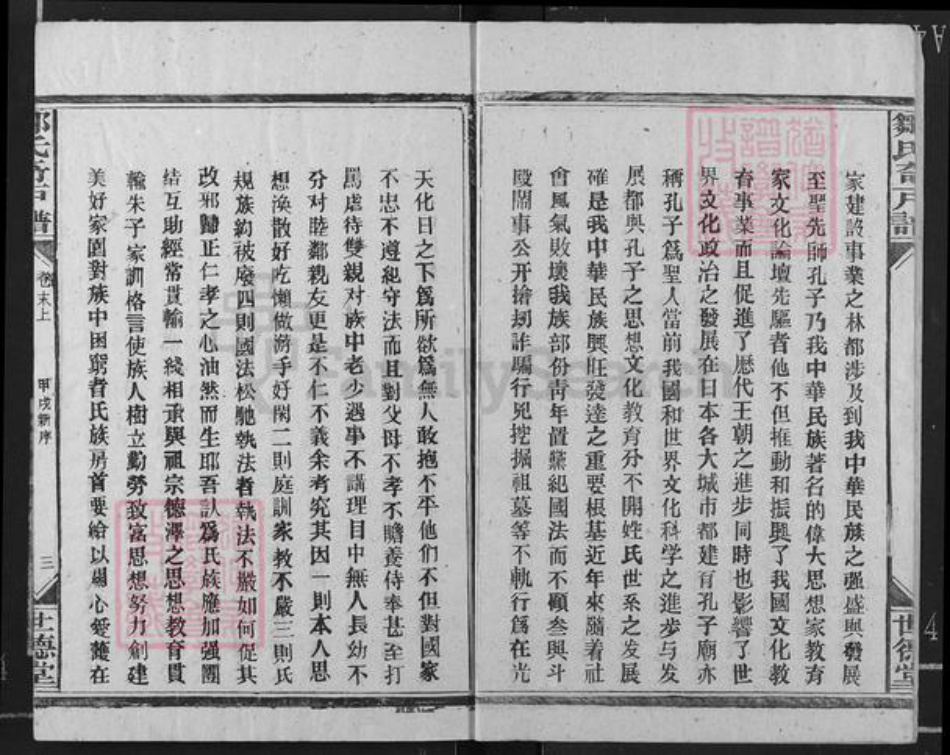 家建設事業之林都涉及到我中華民族之强盛與發展
至聖先師孔子乃我中華民族著名的偉大思想家教育
家文化論壇先驅者他不但推動和振興了我國文化教
育事業而且促進了歷代王朝之進步同時也影響了世
界文化政治之發展在日本各大城市都建有孔子廟亦
稱孔子爲聖人當前我國和世界文化科学之進步与發
展都與孔子之思想文化教育分不開姓氏世系之发展
確是我中華民族興旺發達之重要根基近年來隨着社
會風氣敗壞我族部份靑年置黨紀國法而不顧叁與斗
毆鬧事公开搶刼詐騙行兇挖掘祖墓等不軌行爲在光
天化日之下爲所欲爲無人敢抱不平他们不但對國家
不忠不遵紀守法而且對父母不孝不贍養侍奉甚至打
罵虐待雙親对族中老少遇事不講理目中無人長幼不
分对陸鄰親友更是不仁不義余考究其因一則本人思
想渙散好吃懶做游手好閑二則庭訓家教不嚴三則氏
規族約被廢四則國法松馳執法者執法不嚴如何促其
改邪歸正仁孝之心油然而生耶吾認爲氏族應加强團
结互助經常貫輸一綫相承與祖宗德澤之思想教育貫
輸朱子家訓格言使族人樹立勤勞致富思想努力創建
美好家園對族中困窮者氏族房首要給以關心愛護在
卷末上
甲戌新序
三
世德堂
FamilySearch